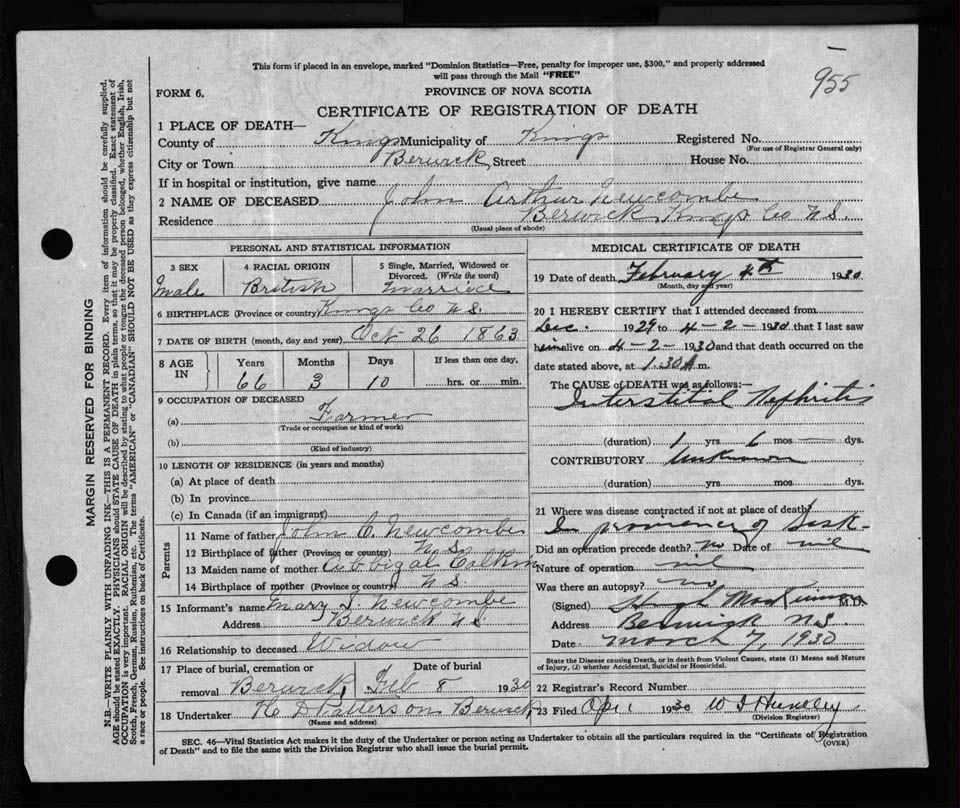 955
This form if placed in an envelope, marked "Dominion Statistics—Free, penalty for improper use, $300," and properly addressed
will pass through the Mail "FREE"
FORM 6.
PROVINCE OF NOVA SCOTIA
CERTIFICATE OF REGISTRATION OF DEATH
1 PLACE OF DEATH—
County of Kings Municipality of Kings Registered No.
(For use of Registrar General only)
City or Town Berwick Street House No.
If in hospital or institution, give name
2 NAME OF DECEASED John Arthur Newcombe
Residence Berwick Kings Co N.S.
(Usual place of abode)
PERSONAL AND STATISTICAL INFORMATION
3 SEX
Male
4 RACIAL ORIGIN
British
5 Single, Married, Widowed or
Divorced. (Write the word)
Married
6 BIRTHPLACE (Province or country) Kings Co N.S.
7 DATE OF BIRTH (month, day and year) Oct 26 1863
8 AGE IN
Years Months Days If less than one day,
66 3 10 hrs. or min.
9 OCCUPATION OF DECEASED
(a) Farmer
(Trade or occupation or kind of work)
(b)
(Kind of industry)
10 LENGTH OF RESIDENCE (in years and months)
(a) At place of death
(b) In province
(c) In Canada (if an immigrant)
Parents
11 Name of father John C. Newcombe
12 Birthplace of father (Province or country) N.S.
13 Maiden name of mother Abbigal Calkin
14 Birthplace of mother (Province or country) N.S.
15 Informant's name Mary J. Newcombe
Address Berwick N.S.
16 Relationship to deceased Widow
17 Place of burial, cremation or
removal Berwick
Date of burial
Feb 8 1930
18 Undertaker H D Patterson Berwick
(Name and address)
MEDICAL CERTIFICATE OF DEATH
19 Date of death February 4th 1930
(Month, day and year)
20 I HEREBY CERTIFY that I attended deceased from
Dec. 1929 to 4-2-1930 that I last saw
him alive on 4-2-1930 and that death occurred on the
date stated above, at 1.30 A m.
The CAUSE of DEATH was as follows:—
Interstitial Nephritis
(duration) 1 yrs 6 mos — dys.
CONTRIBUTORY Unknown
(duration) yrs. mos. dys.
21 Where was disease contracted if not at place of death?
In province of Sask-
Did an operation precede death? no Date of nil
Nature of operation nil
Was there an autopsy? no
(Signed) Hugh M.D.
Address Berwick N.S.
Date March 7, 1930
State the Disease causing Death, or in death from Violent Causes, state (1) Means and Nature
of Injury, (2) whether Accidental, Suicidal or Homicidal.
22 Registrar's Record Number
23 Filed Apr 1 1930
(Division Registrar)
SEC. 46—Vital Statistics Act makes it the duty of the Undertaker or person acting as Undertaker to obtain all the particulars required in the "Certificate of Registration
of Death" and to file the same with the Division Registrar who shall issue the burial permit.
(OVER)
MARGIN RESERVED FOR BINDING
N.B.—WRITE PLAINLY WITH UNFADING INK—THIS IS A PERMANENT RECORD. Every item of information should be carefully supplied.
AGE should be stated EXACTLY. PHYSICIANS should STATE CAUSE OF DEATH in plain terms, so that it may be properly classified. Exact statement of
OCCUPATION is very important. RACIAL ORIGIN will be described by stating to what people or tongue the deceased person belonged, whether English, Irish,
Scotch, French, German, Russian, Ruthenian, etc. The terms "AMERICAN" or "CANADIAN" SHOULD NOT BE USED as they express citizenship but not
a race or people. See instructions on back of Certificate.